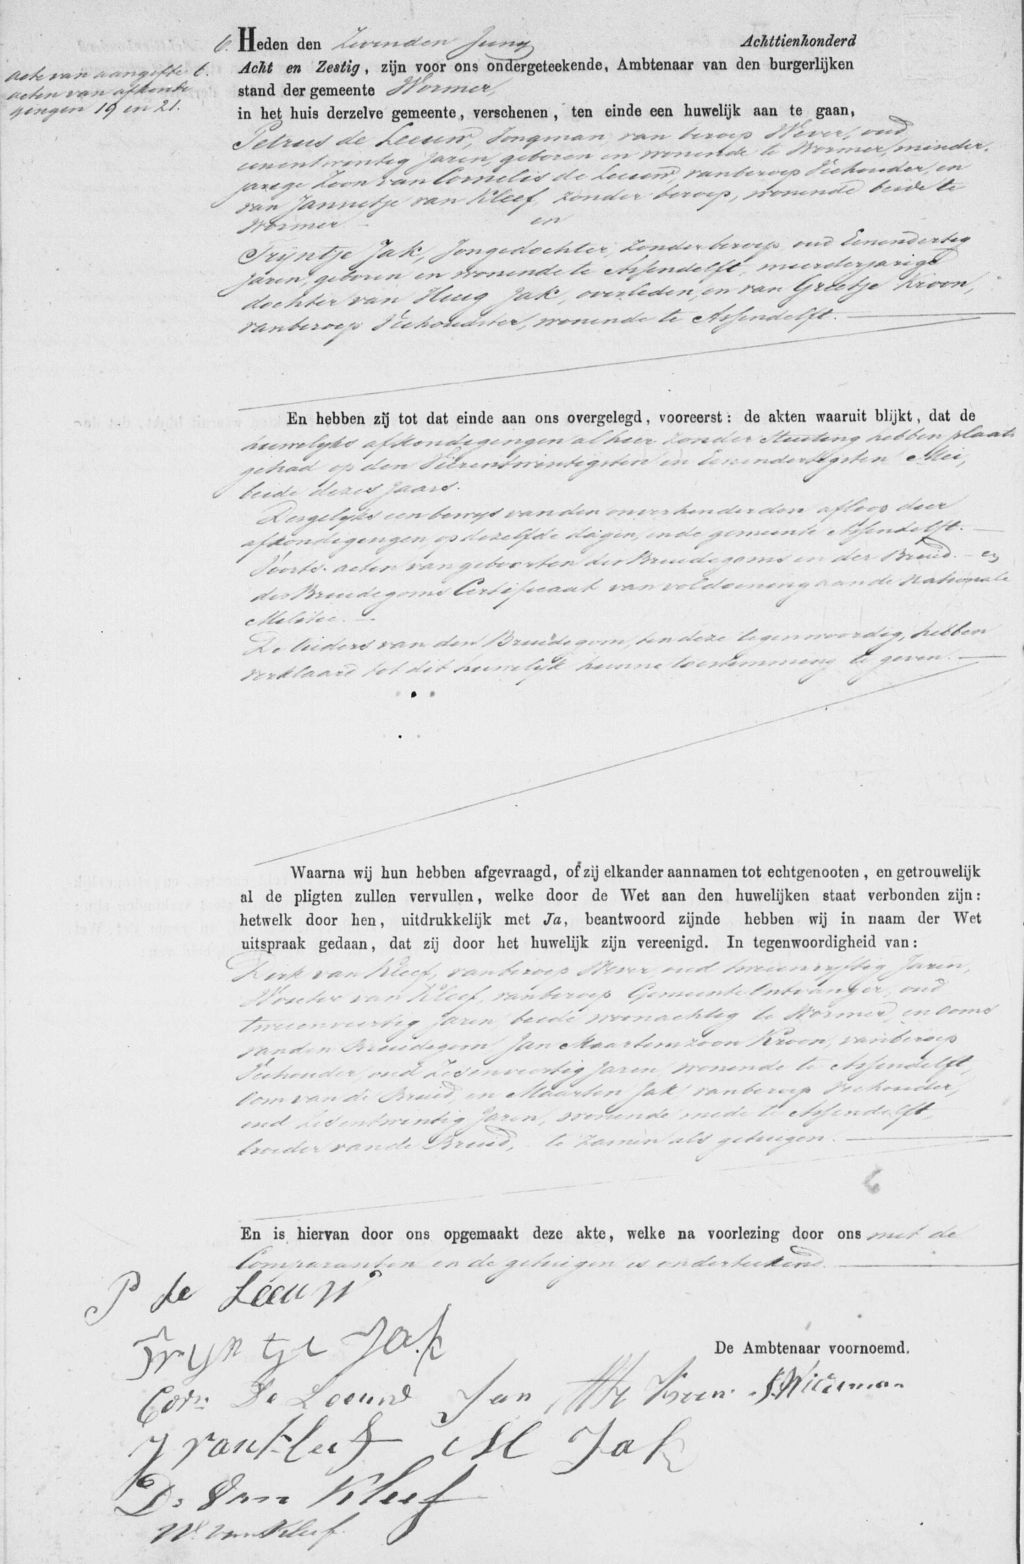 acte van aangifte 6.
acten van afkondi
gingen 19 en 21.
6. Heden den Zevenden Juny Achttienhonderd
Acht en Zestig, zijn voor ons ondergeteekende, Ambtenaar van den burgerlijken
stand der gemeente Wormer,
in het huis derzelve gemeente, verschenen, ten einde een huwelijk aan te gaan,
Petrus de Leeuw, Jongman, van beroep Wever, oud
eenentwintig Jaren, geboren en wonende te Wormer, minder-
jarige Zoon van Cornelis de Leeuw van beroep Veehouder, en
van Jannetje van Kleef, zonder beroep, wonende beide te
Wormer
en
Trijntje Jak, Jongedochter, zonder beroep, oud Eenendertig
Jaren, geboren en wonende te Assendelft, meerderjarige
dochter van Huig Jak, overleden, en van Grietje Kroon,
van beroep Veehoudster, wonende te Assendelft.
En hebben zij tot dat einde aan ons overgelegd, vooreerst: de akten waaruit blijkt, dat de
huwelijks afkondigingen alhier zonder Stuiting hebben plaats
gehad op den Vierentwintigsten en Eenendertigsten Mei,
beide dezes Jaars.
Dergelijks een bewijs van den onverhinderden afloop deer
afkondigingen op dezelfde dagen, in de gemeente Assendelft.
Voorts. acten van geboorten des Bruidegoms en der Bruid. en
des Bruidegoms Certificaat van voldoening aan de Nationale
Militie.
De Ouders van den Bruidegom, ten deze tegenwoordig, hebben
verklaard tot dit huwelijk hunne toestemming te geven.
Waarna wij hun hebben afgevraagd, of zij elkander aannamen tot echtgenooten, en getrouwelijk
al de pligten zullen vervullen, welke door de Wet aan den huwelijken staat verbonden zijn:
hetwelk door hen, uitdrukkelijk met Ja, beantwoord zijnde hebben wij in naam der Wet
uitspraak gedaan, dat zij door het huwelijk zijn vereenigd. In tegenwoordigheid van:
Dirk van Kleef, van beroep Wever, oud tweeenvyftig Jaren,
Wouter van Kleef, van beroep Gemeente Ontvanger, oud
tweeenveertig Jaren, beide woonachtig te Wormer, en Ooms
van den Bruidegom, Jan Maartenszoon Kroon, van beroep
Veehouder, oud Zesenveertig Jaren, wonende te Assendelft,
Oom van de Bruid, en Maarten Jak, van beroep Veehouder,
oud Zesentwintig Jaren, wonende mede te Assendelft,
broeder van de Bruid, te zamen als getuigen.
6
En is hiervan door ons opgemaakt deze akte, welke na voorlezing door ons met de
Comparanten en de getuigen is onderteekend.
P de Leeuw
Tryntje Jak
De Ambtenaar voornoemd.
Corn: De Leeuw Jan Kroon
J van Kleef M Jak
D. Van Kleef
W. van Kleef.